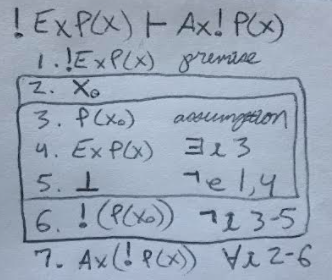 ! Ex P(x) ⊢ Ax ! P(x)
1. !Ex P(x) premise
2. x₀
3. P(x₀) assumption
4. Ex P(x) ∃i 3
5. ⊥ ¬e 1,4
6. ! (P(x₀)) ¬i 3-5
7. Ax (! P(x)) ∀i 2-6